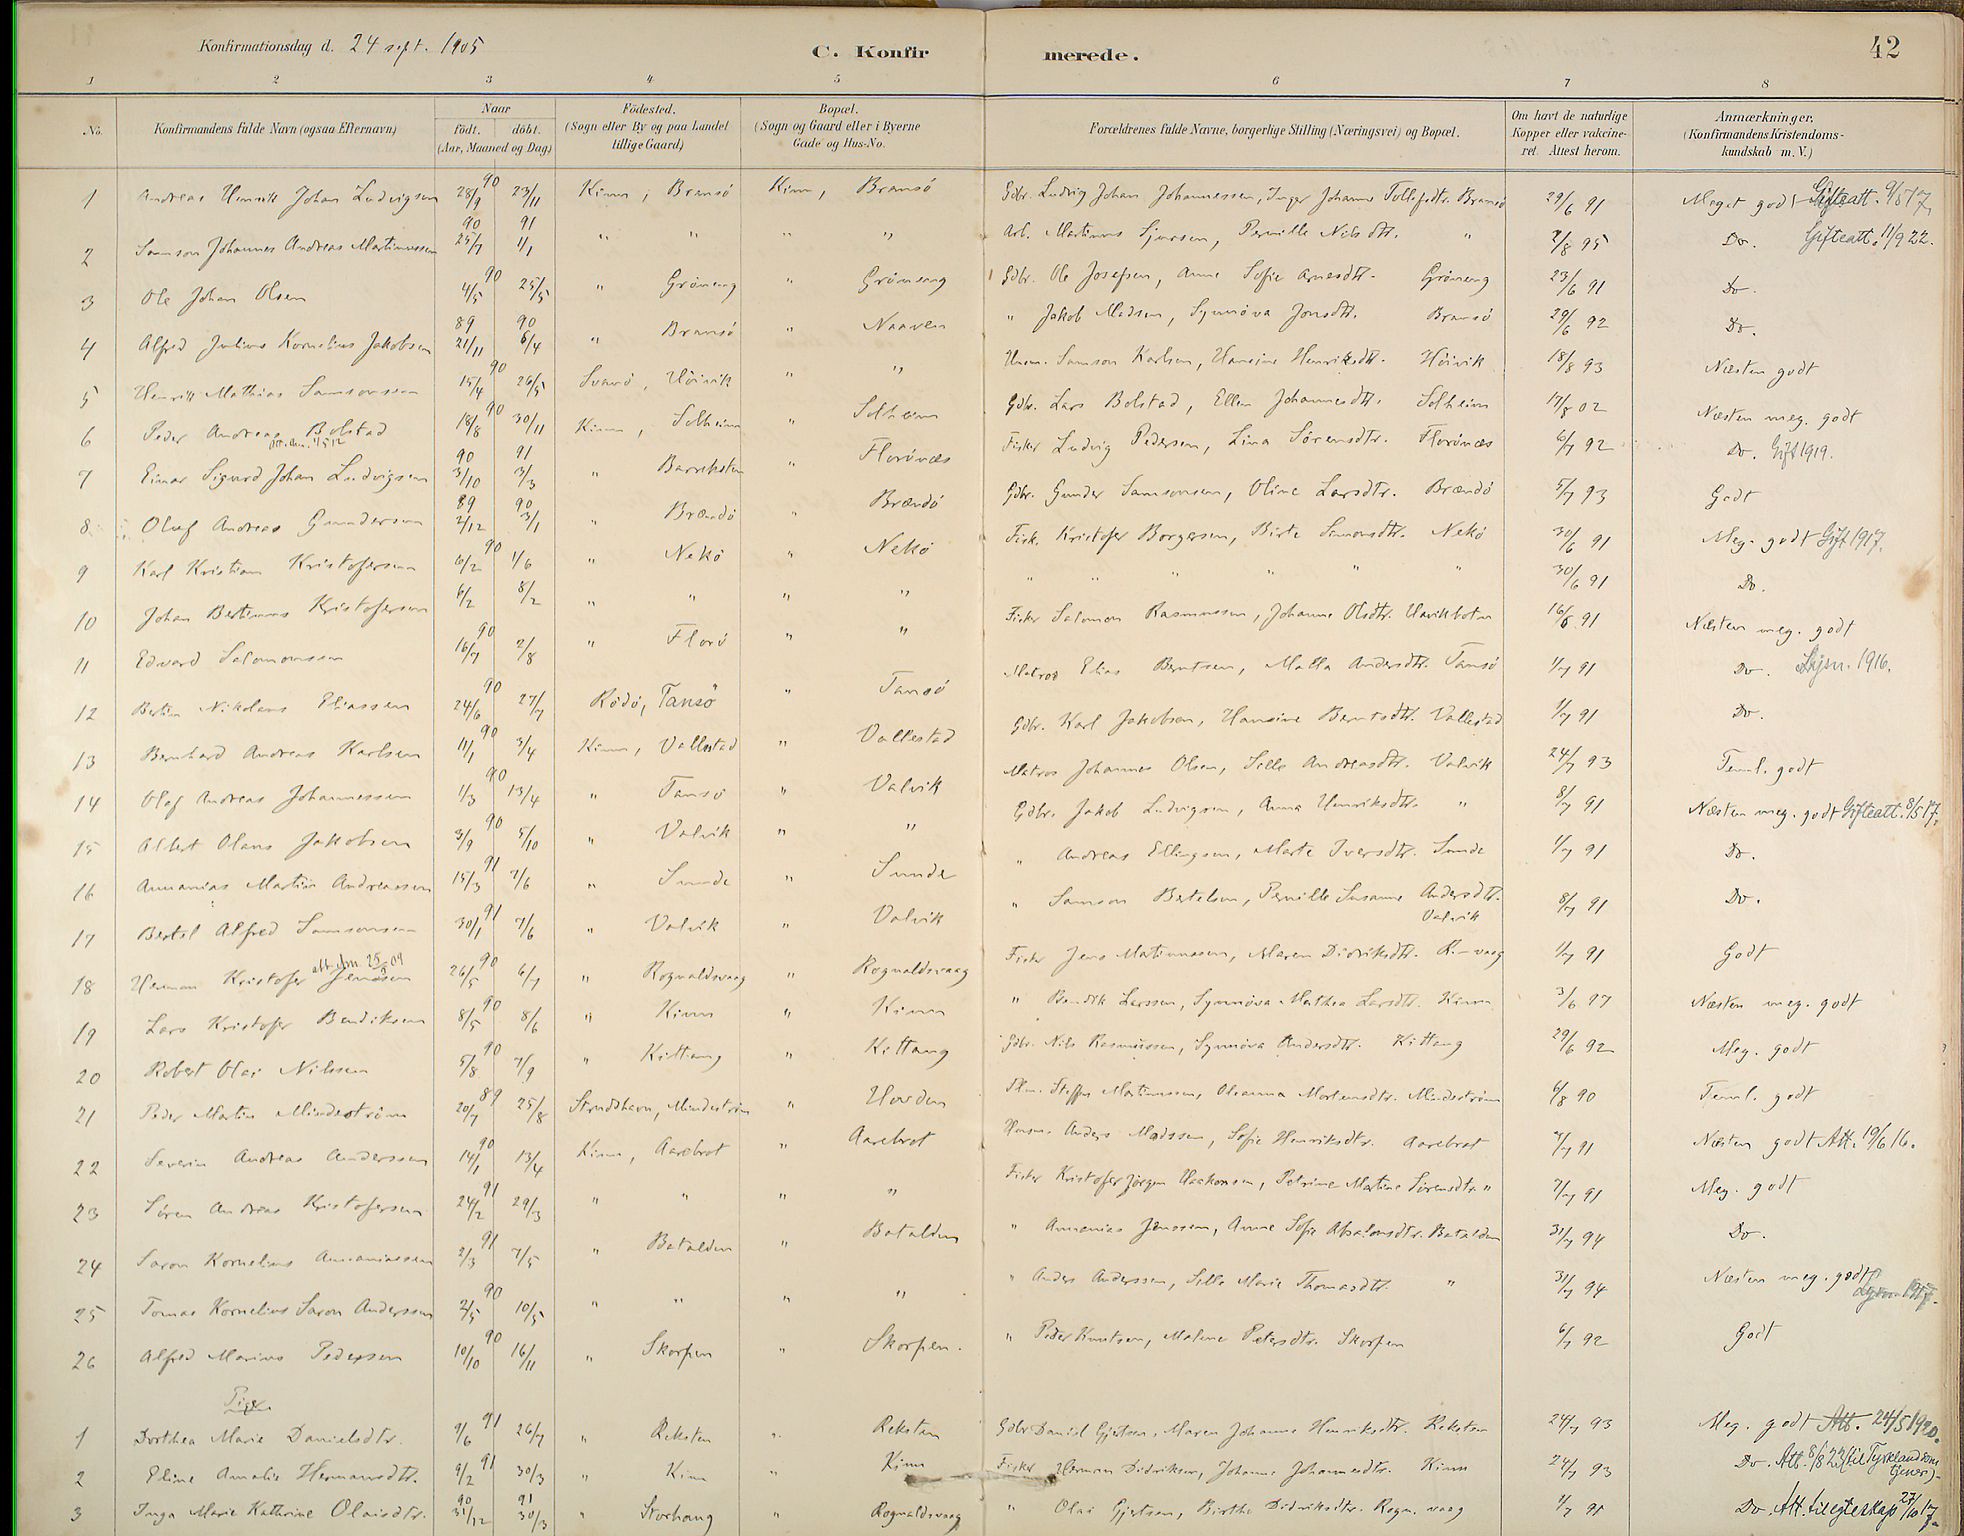 Konfirmationsdag d. 24 sept. 1905
C. Konfirmerede.
42
1 2 3 4 5 6 7 8
No. Konfirmandens fulde Navn (ogsaa Efternavn) Naar født. døbt. (Aar, Maaned og Dag) Fødested. (Sogn eller By og paa Landet tillige Gaard) Bopæl. (Sogn og Gaard eller i Byerne Gade og Hus-No. Forældrenes fulde Navne, borgerlige Stilling (Næringsvei) og Bopæl. Om havt de naturlige Kopper eller vakcineret. Attest herom. Anmærkninger. (Konfirmandens Kristendomskundskab m. V.)
1 Andreas Henrik Johan Ludvigsen 28/9 90 23/11 Kinn, Bransø Kinn, Bransø Gdbr. Ludvig Johan Johannessen, Inger Johanne Tollefsdtr. Bransø 29/6 91 Meget godt Gifteatt. 9/5 17.
2 Samson Johannes Andreas Martinussen 25/7 90 1/1 91 " " " " Arb. Martinus Sjursen, Pernille Nilsdtr. " 2/8 95 Do. Gifteatt. 11/9 22.
3 Ole Johan Olsen 4/5 90 25/5 " Grøneng " Grøneng Gdbr. Ole Josefsen, Anne Sofie Arnesdtr. Grøneng 23/6 91 Do.
4 Alfred Julius Kornelius Jakobsen 21/11 89 6/4 90 " Bransø " Naaven " Jakob Madsen, Synnøva Jonsdtr. Bransø 29/6 92 Do.
5 Henrik Mathias Samsonsen 15/4 90 26/5 Svanø, Høivik " " Husm. Samson Karlsen, Hansine Henriksdtr. Høivik 18/8 93 Næsten godt
6 Peder Andreas Bolstad 18/8 90 30/11 Kinn, Solheim " Solheim Gdbr. Lars Bolstad, Ellen Johannesdtr. Solheim 17/8 02 Næsten meg. godt
7 Einar Sigurd Johan Ludvigsen 3/10 90 3/3 91 " Barreksten " Florønes Fisker Ludvig Pedersen, Lina Sørensdtr. Florønes 6/7 92 Do. Gift 1919.
8 Oluf Andreas Gundersen 2/12 89 3/1 90 " Brændø " Brændø Gdbr. Gunder Samsonsen, Oline Larsdtr. Brændø 5/7 93 Godt
9 Karl Kristian Kristofersen 6/2 90 1/6 " Nekø " Nekø Fisk. Kristofer Borgersen, Birte Simonsdtr. Nekø 30/6 91 Meg. godt Gift 1917.
10 Johan Bertinus Kristofersen 6/2 8/2 " " " " " " " " " " 30/6 91 Do.
11 Edvard Salomonsen 16/7 90 2/8 " Florø " " Fisker Salomon Rasmussen, Johanne Olsdtr. 16/6 91 Næsten meg. godt
12 Bertin Nikolaus Eliassen 24/6 90 27/7 Rødø, Tansø " Tansø Matros Elias Berntsen, Malla Andersdtr. Tansø 1/7 91 Do. Lysn. 1916.
13 Bernhard Andreas Karlsen 11/1 90 3/4 Kinn, Vallestad " Vallestad Gdbr. Karl Jakobsen, Hansine Berntsdtr. Vallestad 1/7 91 Do.
14 Olaf Andreas Johannessen 1/3 90 13/4 " Tansø " Valvik Matros Johannes Olsen, Sille Andreasdtr. Valvik 24/7 93 Teml. godt
15 Albert Olaus Jakobsen 3/9 90 5/10 " Valvik " " Gdbr. Jakob Ludvigsen, Anna Henriksdtr. " 8/7 91 Næsten meg. godt Gifteatt. 8/5 17.
16 Annanias Martin Andreassen 15/3 91 7/6 " Sunde " Sunde " Andreas Ellingsen, Marte Iversdtr. Sunde 1/7 91 Do.
17 Bertel Alfred Samsonsen 30/1 91 7/6 " Valvik " Valvik " Samson Bertelsen, Pernille Susanne Andersdtr. Valvik 8/7 91 Do.
18 Herman Kristofer Jensen 26/5 90 6/7 " Rognaldsvaag " Rognaldsvaag Fisker Jens Matinussen, Maren Didriksdtr. R.-vaag 1/7 91 Godt
19 Lars Kristofer Bendiksen 8/5 90 8/6 " Kinn " Kinn " Bendik Larssen, Synnøva Mathea Larsdtr. Kinn 3/6 97 Næsten meg. godt
20 Robert Olai Nilssen 5/8 90 7/9 " Kittang " Kittang Gdbr. Nils Rasmussen, Synnøva Andersdtr. Kittang 29/6 92 Meg. godt
21 Peder Martin Mindestrøm 20/7 89 25/8 Strudshavn, Mindestrøm " Hovden Steffen Martinussen, Oleanna Mortensdtr. Mindestrøm 6/8 90 Teml. godt
22 Severin Andreas Anderssen 14/1 90 13/4 Kinn, Aarebrot " Aarebrot Husm. Anders Madssen, Sofie Henriksdtr. Aarebrot 7/7 91 Næsten godt Att. 19/6 16.
23 Søren Andreas Kristofersen 24/2 91 29/3 " " " " Fisker Kristofer Jørgen Haakonsen, Petrine Martine Sørensdtr. " 7/7 91 Meg. godt
24 Saron Kornelius Annaniassen 2/3 91 7/5 " Batalden " Batalden " Annanias Jenssen, Anne Sofie Absalonsdtr. Batalden 31/7 94 Do.
25 Tomas Kornelius Saron Anderssen 2/5 90 10/5 " " " " " Anders Anderssen, Sille Marie Thomasdtr. " 31/7 94 Næsten meg. godt Lysn. 1917.
26 Alfred Marius Pedersen 10/10 90 16/11 " Skorpen " Skorpen. " Peder Knutsen, Malene Petersdtr. Skorpen 6/7 92 Godt
Piger
1 Dorthea Marie Danielsdtr. 9/6 91 26/7 " Reksten " Reksten Gdbr Daniel Gjertsen, Maren Johanne Henriksdtr. Reksten 24/7 93 Meg. godt Att. 24/5 1920.
2 Eline Amalie Hermansdtr. 9/2 91 30/3 " Kinn " Kinn Fisker Herman Didriksen, Johanne Johannesdtr. Kinn 24/7 93 Do. Att. 8/8 22 (til Tyskland som tjener).
3 Inga Marie Kathrine Olaisdtr. 31/12 90 30/3 91 " Storhaug " Rognaldsvaag " Olai Gjertsen, Birthe Didriksdtr. Rogn. vaag 1/7 91 Do. Att. til egteskap 27/10 17.